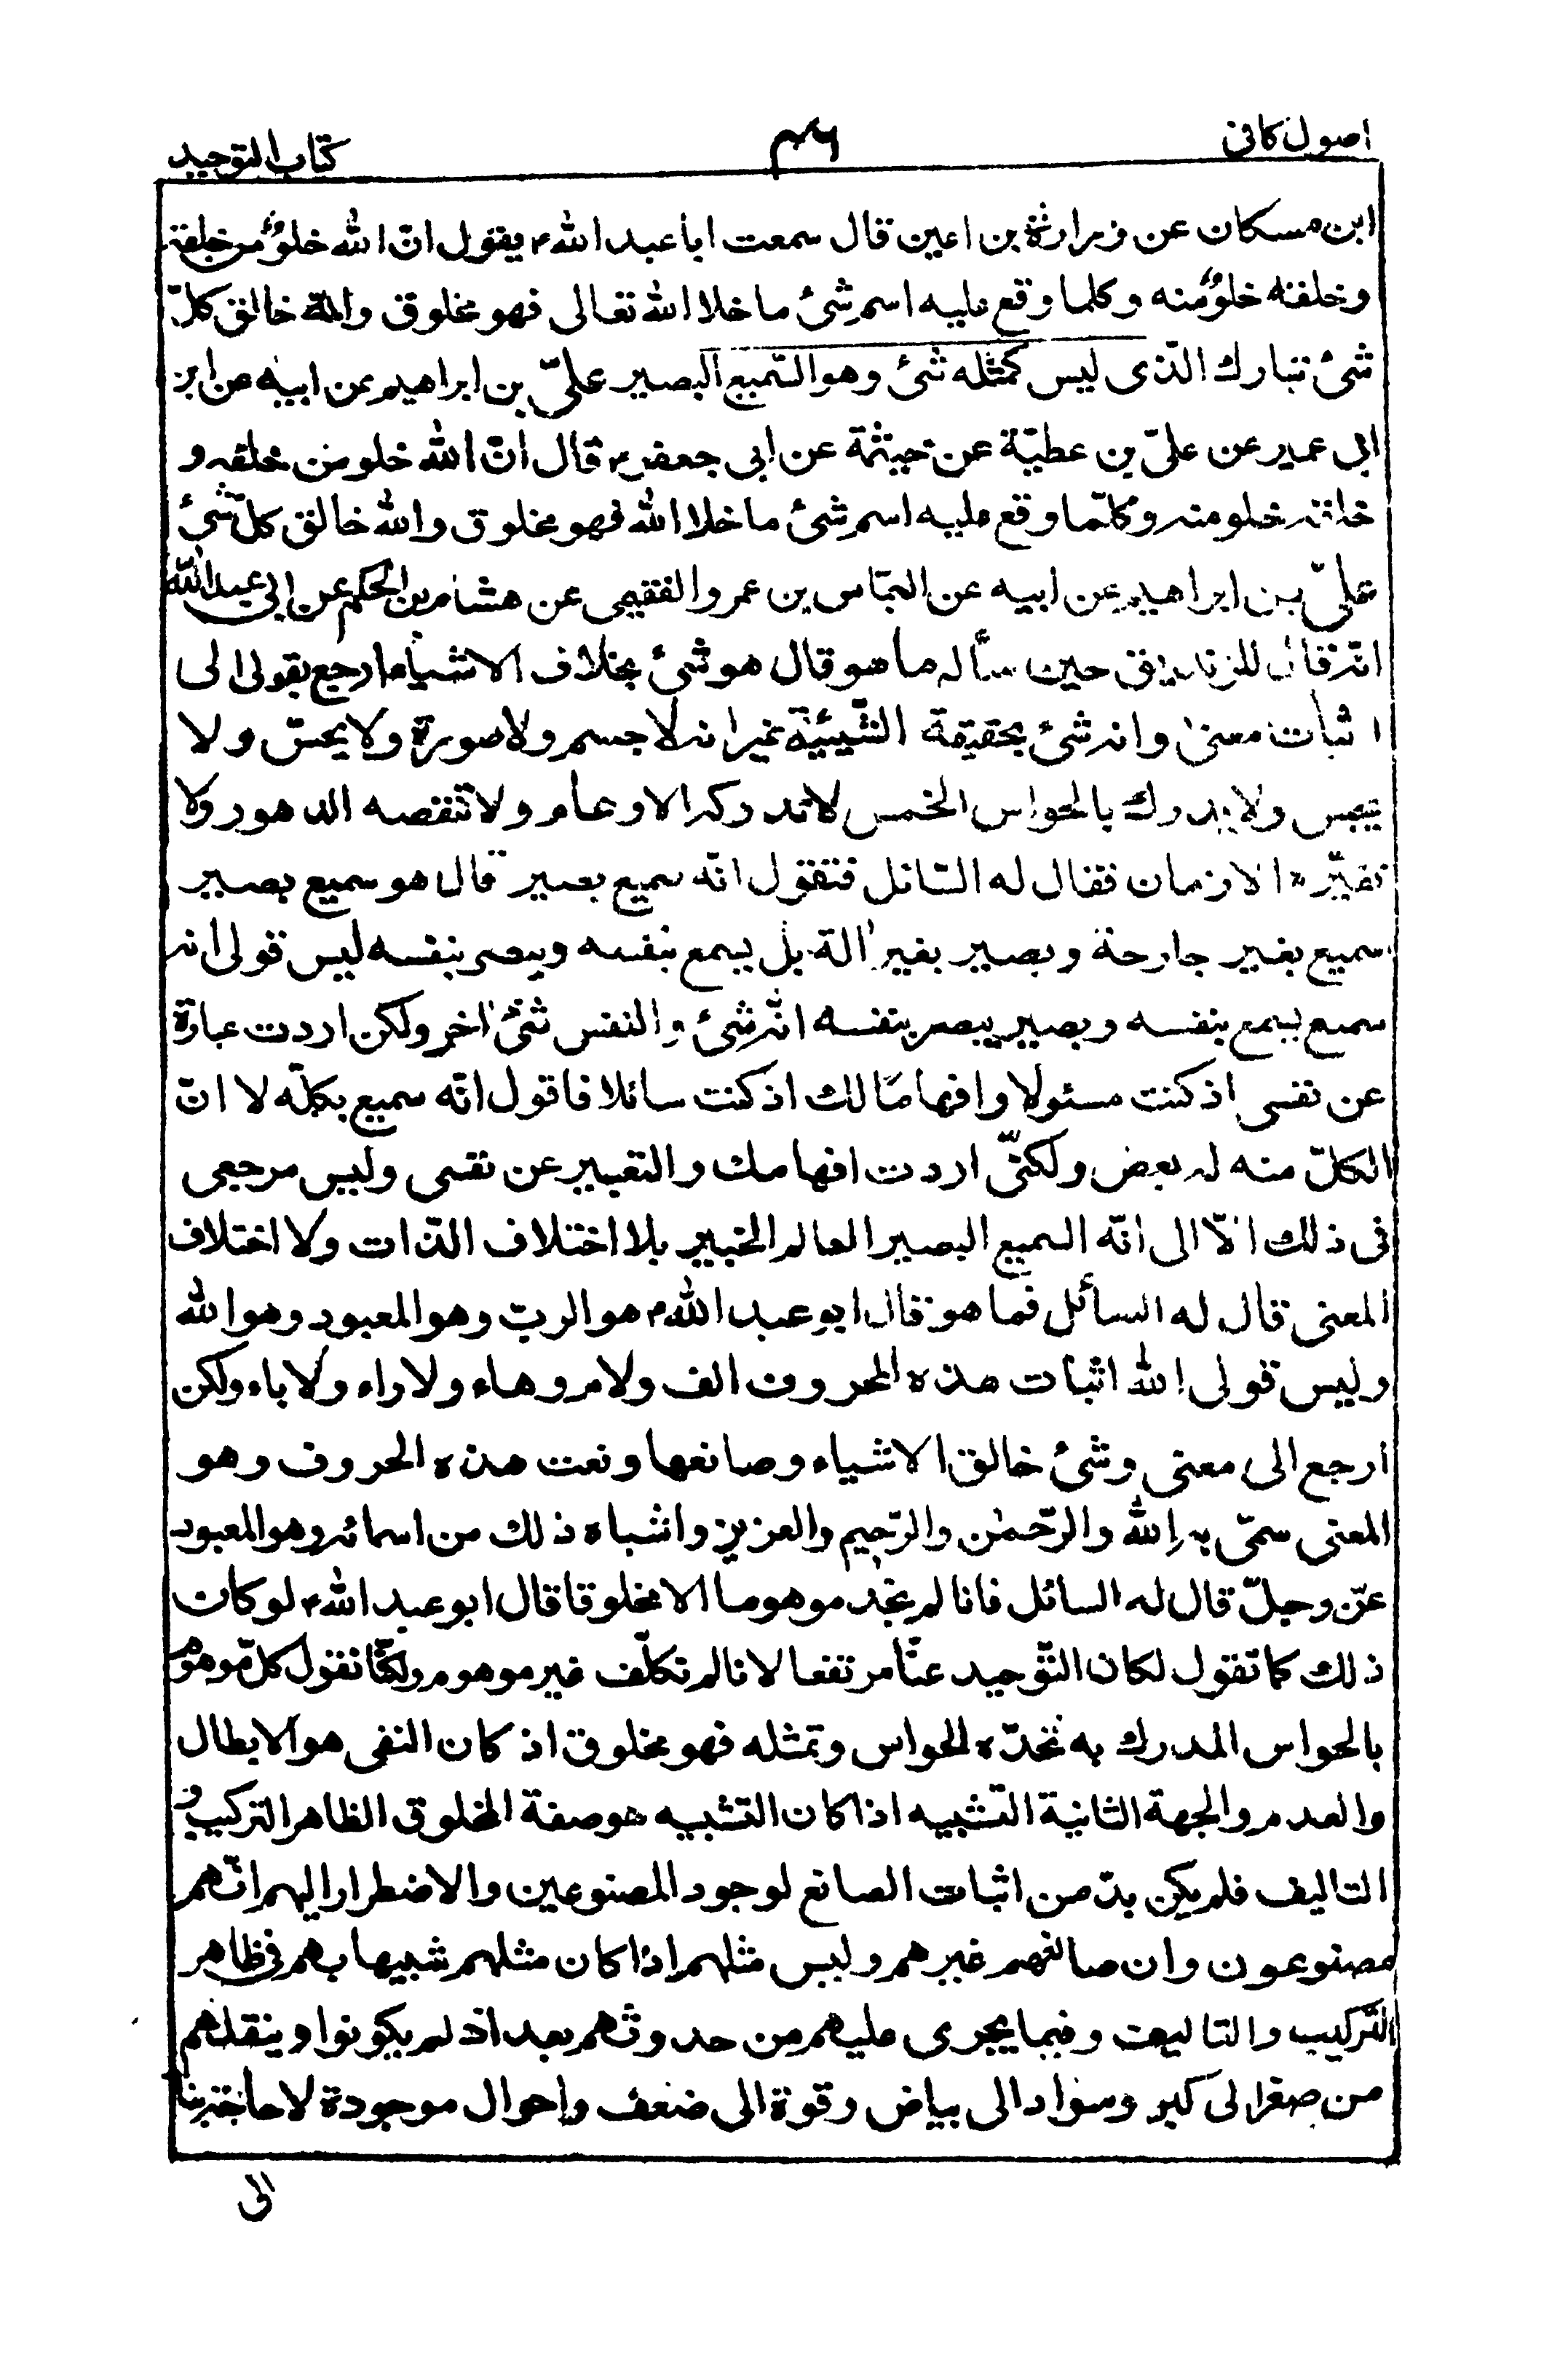 اصول كافى
٤٦
كتاب التوحيد
ابن مسكان عن زرارة بن اعين قال سمعت ابا عبد الله ع يقول ان الله خلوٌ من خلقه
وخلقه خلوٌ منه وكلما وقع عليه اسم شئ ما خلا الله تعالى فهو مخلوق والله خالق كلّ
شئ تبارك الّذى ليس كمثله شئ وهو السّميع البصير علىّ بن ابراهيم عن ابيه عن ابن
ابى عمير عن علىّ بن عطيّة عن خيثمة عن ابى جعفر ع قال انّ الله خلو من خلقه و
خلقه خلو منه وكلّما وقع عليه اسم شئ ما خلا الله فهو مخلوق والله خالق كلّ شئ
علىّ بن ابراهيم عن ابيه عن العبّاس بن عمرو الفقيمى عن هشام بن الحكم عن ابى عبد الله
انّه قال للزنديق حين سأله ما هو قال هو شئ بخلاف الاشياء ارجع بقولى الى
اثبات معنىٰ وانه شئ بحقيقة الشّيئيّة غير انه لا جسم ولا صورة ولا يحسّ ولا
يجس ولا يدرك بالحواس الخمس لا تدركه الاوهام ولا تنقصه الدهور ولا
تغيّره الازمان فقال له السّائل فتقول انّه سميع بصير قال هو سميع بصير
سميع بغير جارحة وبصير بغير الة بل يسمع بنفسه ويبصر بنفسه ليس قولى انه
سميع يسمع بنفسه وبصير يبصر بنفسه انّه شئ والنفس شئ اخر ولكن اردت عبارة
عن نفسى اذ كنت مسئولا وافهاما لك اذ كنت سائلا فاقول انّه سميع بكلّه لا انّ
الكلّ منه له بعض ولكنّى اردت افهامك والتعبير عن نفسى وليس مرجعى
فى ذلك الّا الى انّه السميع البصير العالم الخبير بلا اختلاف الذّات ولا اختلاف
المعنى قال له السائل فما هو قال ابو عبد الله ع هو الربّ وهو المعبود وهو الله
وليس قولى الله اثبات هذه الحروف الف ولام وهاء ولا راء ولا باء ولكن
ارجع الى معنى وشئ خالق الاشياء وصانعها ونعت هذه الحروف وهو
المعنى سمّى به الله والرّحمٰن والرّحيم والعزيز واشباه ذلك من اسمائه وهو المعبود
عزّ وجلّ قال له السائل فانا لم نجد موهوما الا مخلوقا قال ابو عبد الله ع لو كان
ذلك كما تقول لكان التّوحيد عنّا مرتفعا لانا لم نكلّف غير موهوم ولكنّا نقول كلّ موهوم
بالحواس المدرك به تحدّه الحواس وتمثله فهو مخلوق اذ كان النفى هو الابطال
والعدم والجهة الثانية التّشبيه اذا كان التّشبيه هو صفة المخلوق الظاهر التركيب و
التاليف فلم يكن بدّ من اثبات الصانع لوجود المصنوعين والاضطرار اليهم انّهم
مصنوعون وان صانعهم غيرهم وليس مثلهم اذا كان مثلهم شبيها بهم فى ظاهر
التّركيب والتاليف وفيما يجرى عليهم من حدوثهم بعد اذ لم يكونوا وينقلهم
من صغر الى كبر وسواد الى بياض وقوة الى ضعف واحوال موجودة لا حاجة بنا
الى